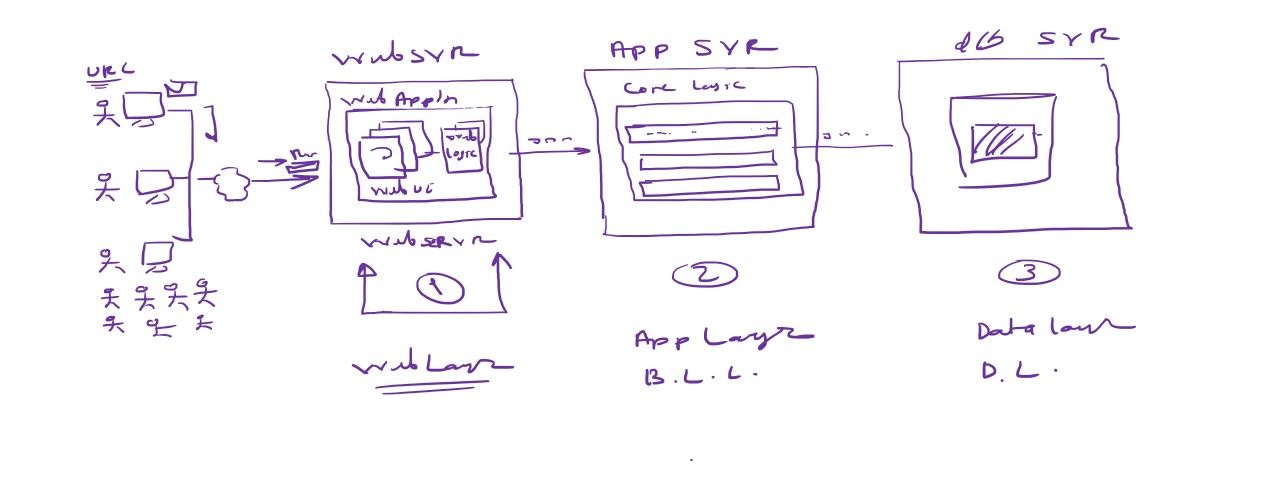 URL
Web SVR
Web Appln
Web UI
Logic
Web SERVR
1
Web Layer
App SVR
Core Logic
2
App Layer
B.L.L.
db SVR
3
Data layer
D.L.